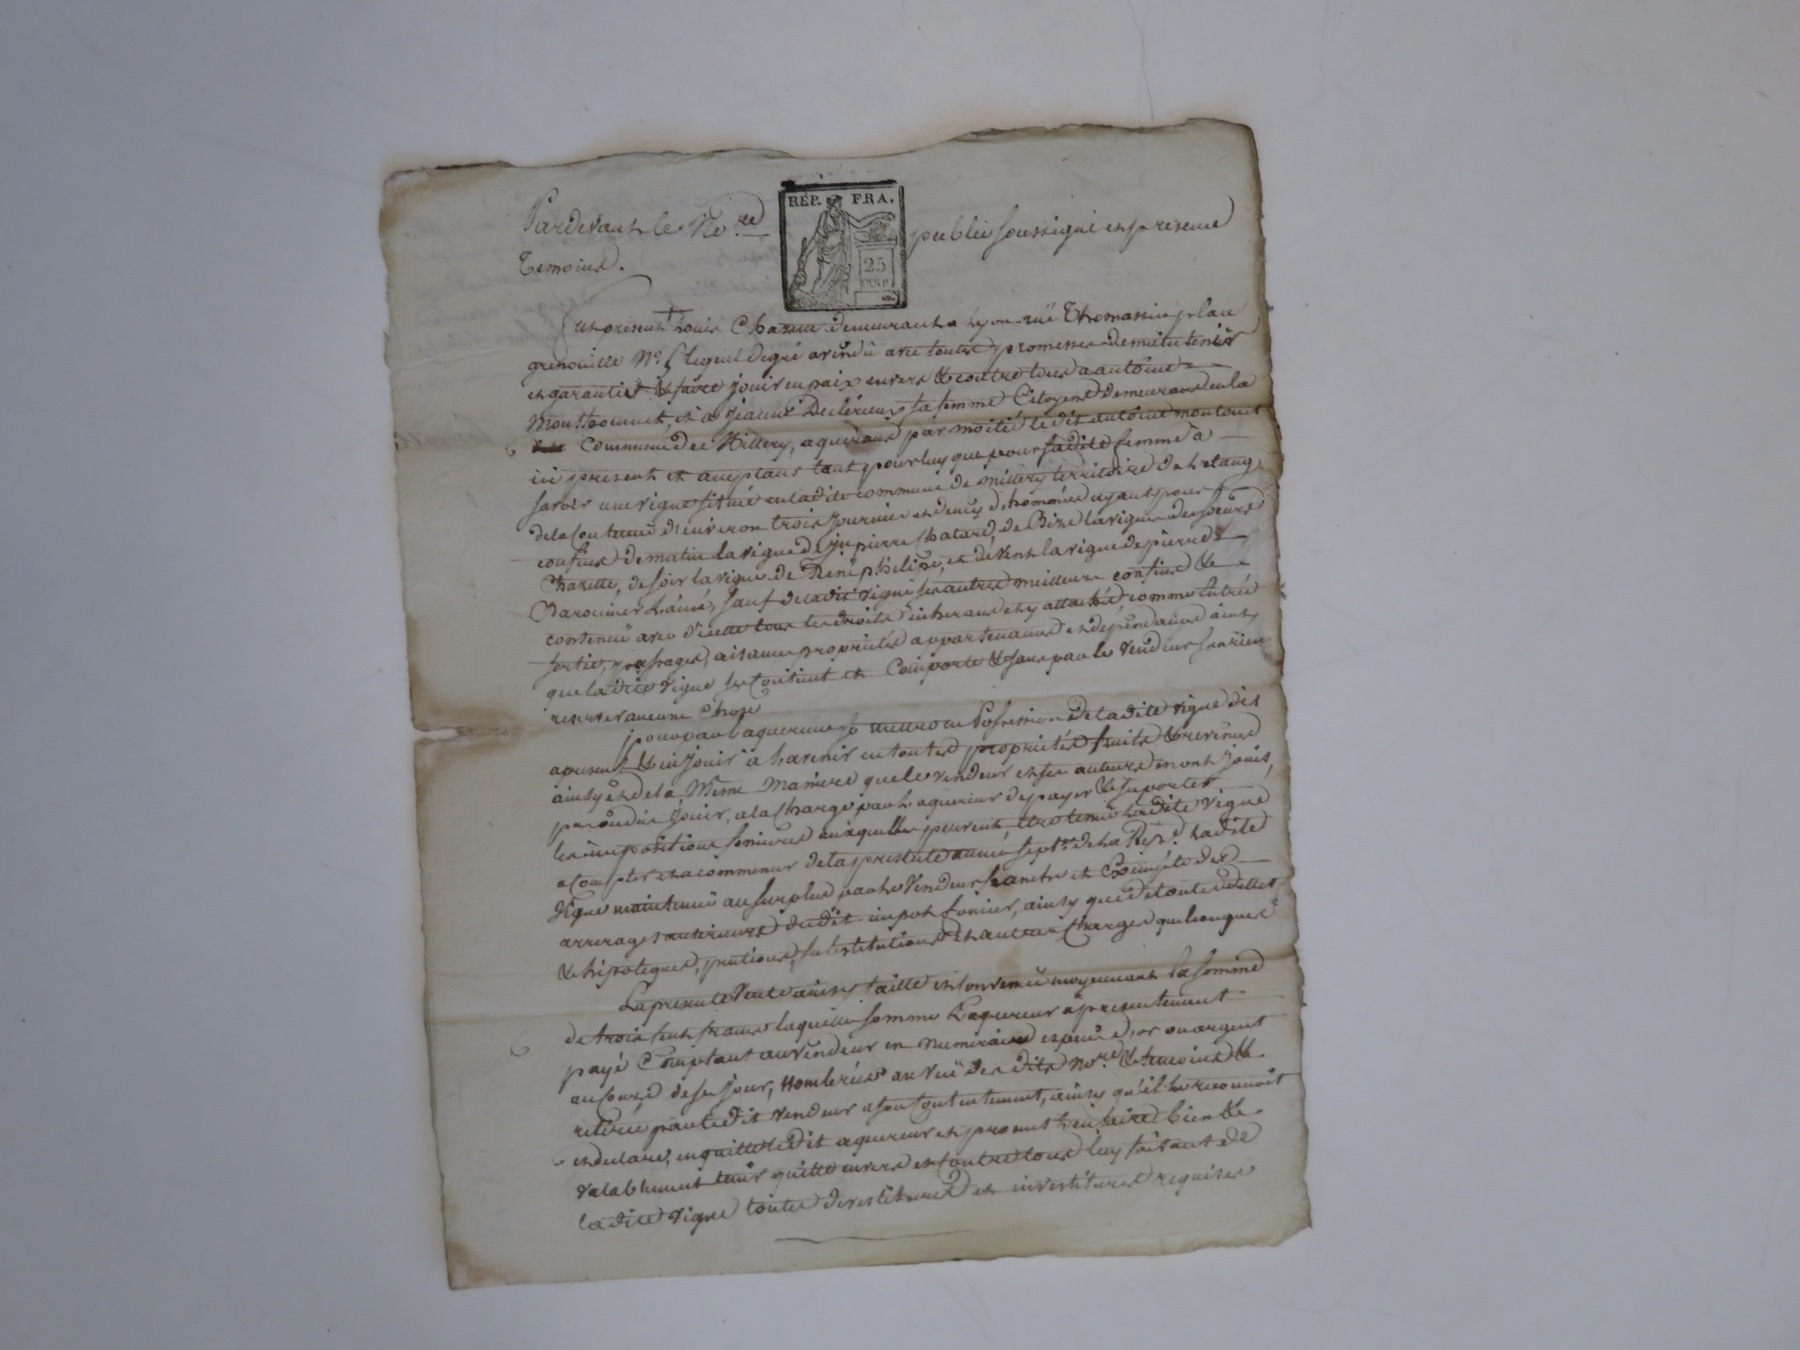 Pardevant le No.re public soussigné en presence
RÉP. FRA.
25
CENT.
Temoins.
fut present Louis Chazette demeurant a Lyon rüe Thomassin place
grenouille No. 5 lequel de gré a vendu avec toutes promesses de maintenir
et garantir & faire jouir en paix envers & contre tous a antoine
et a sa femme Citoyens demeurans en la
Commune de Millery, aquerans par moitié ledit antoine
ici present et acceptant tant pour luy que pour sadite femme a
savoir une vigne située en ladite commune de millery territoire de
de la contenue d'environ trois journées et demy d'hommée ayant pour
confins de matin la vigne de jn pierre Chatard, de Bize la vigne des soeurs
Chazette, de soir la vigne de René philipe, et de vent la vigne de pierre
L'ainé, sauf de ladite vigne ses autres meilleurs confins &
contenüe avec d'icelle tous les droits inherans et y attachés comme entrée
sortie, passages, aisances proprietés appartenances et dépendances ainsy
que ladite vigne se contient et Comporte & sans par le vendeur s'en rien
reserver aucune chose
pour par l'aquereur se mettre en Possession de ladite vigne dès
apresent & en jouir a l'avenir en toutes proprietés fruits & revenus
ainsy et de la Même Maniere que le vendeur et ses auteurs en ont jouis,
pu ou dus jouir, a la charge par l'aquereur de payer & suporter
les impositions foncieres auxquelles peuvent être tenue ladite vigne
a compter et a commencer de la presente année sept.me de la Rep.e ladite
Vigne maintenue au surplus par le Vendeur franche et Exempte des
arrerages anterieurs dudit impot foncier, ainsy que de toutes dettes
& hipoteques, pentions, substitutions et autres Charges quelconques
La presente Vente ainsy faitte et convenüe moyennant La somme
de trois cent francs laquelle somme L'aquereur a presentement
payé Comptant au vendeur en numeraire especes d'or ou argent
au cours de ce jour, Nombrée au veü des dits no.re & temoins &
retirée par ledit vendeur a son contentement, ainsy qu'il le reconnoit
et declare, en quitte ledit aquereur et promet l'en faire bien &
valablement tenir quitte envers et contre tous luy faisant de
ladite vigne toutes devestitures et investitures requises